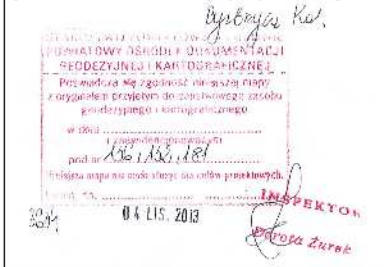 POWIATOWY OŚRODEK DOKUMENTACJI
GEODEZYJNEJ I KARTOGRAFICZNEJ
Poświadcza się zgodność niniejszej mapy
z oryginałem przyjętym do państwowego zasobu
geodezyjnego i kartograficznego
w dniu
i zaewidencjonowanym
pod nr 156, 152, 181
Niniejsza mapa nie może służyć dla celów projektowych.
04 LIS. 2013
INSPEKTOR
Dorota Żurek